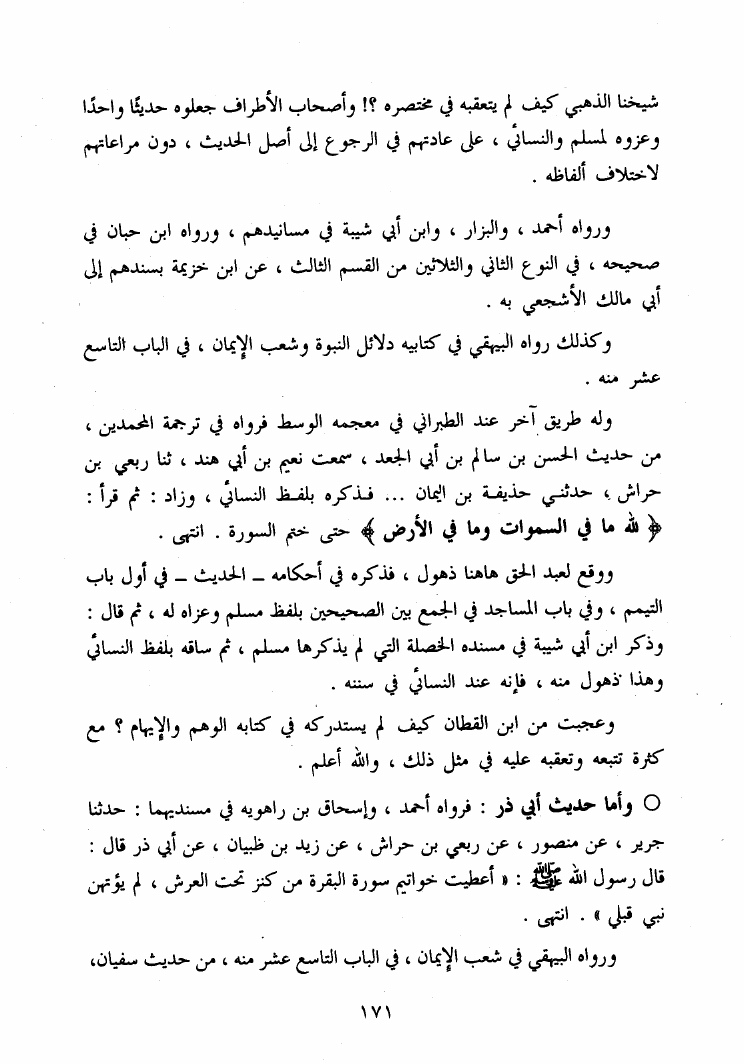 شيخنا الذهبي كيف لم يتعقبه في مختصره ؟! وأصحاب الأطراف جعلوه حديثًا واحدًا
وعزوه لمسلم والنسائي ، على عادتهم في الرجوع إلى أصل الحديث ، دون مراعاتهم
لاختلاف ألفاظه .
ورواه أحمد ، والبزار ، وابن أبي شيبة في مسانيدهم ، ورواه ابن حبان في
صحيحه ، في النوع الثاني والثلاثين من القسم الثالث ، عن ابن خزيمة بسندهم إلى
أبي مالك الأشجعي به .
وكذلك رواه البيهقي في كتابيه دلائل النبوة وشعب الإيمان ، في الباب التاسع
عشر منه .
وله طريق آخر عند الطبراني في معجمه الوسط فرواه في ترجمة المحمدين ،
من حديث الحسن بن سالم بن أبي الجعد ، سمعت نعيم بن أبي هند ، ثنا ربعي بن
حراش ، حدثني حذيفة بن اليمان ... فذكره بلفظ النسائي ، وزاد : ثم قرأ :
﴿ لله ما في السموات وما في الأرض ﴾ حتى ختم السورة . انتهى .
ووقع لعبد الحق هاهنا ذهول ، فذكره في أحكامه ــ الحديث ــ في أول باب
التيمم ، وفي باب المساجد في الجمع بين الصحيحين بلفظ مسلم وعزاه له ، ثم قال :
وذكر ابن أبي شيبة في مسنده الخصلة التي لم يذكرها مسلم ، ثم ساقه بلفظ النسائي
وهذا ذهول منه ، فإنه عند النسائي في سننه .
وعجبت من ابن القطان كيف لم يستدركه في كتابه الوهم والإيهام ؟ مع
كثرة تتبعه وتعقبه عليه في مثل ذلك ، والله أعلم .
○ وأما حديث أبي ذر : فرواه أحمد ، وإسحاق بن راهويه في مسنديهما : حدثنا
جرير ، عن منصور ، عن ربعي بن حراش ، عن زيد بن ظبيان ، عن أبي ذر قال :
قال رسول الله ﷺ : « أعطيت خواتيم سورة البقرة من كنز تحت العرش ، لم يؤتهن
نبي قبلي » . انتهى .
ورواه البيهقي في شعب الإيمان ، في الباب التاسع عشر منه ، من حديث سفيان،
١٧١